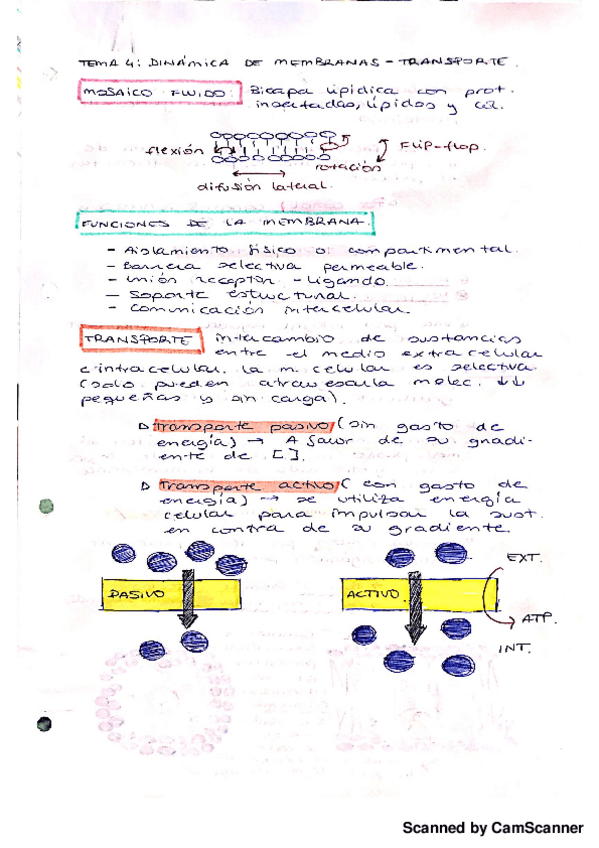 TEMA 4: DINÁMICA DE MEMBRANAS - TRANSPORTE.
MOSAICO FLUIDO: Bicapa lipídica con prot.
insertadas, lípidos y col.
flexión
Flip-flop.
rotación
difusión lateral.
FUNCIONES DE LA MEMBRANA.
- Aislamiento físico o compartimental.
- Barrera selectiva permeable.
- Unión receptor - ligando.
- Soporte estructural.
- Comunicación intercelular.
TRANSPORTE intercambio de sustancias
entre el medio extracelular
e intracelular. La m. celular es selectiva
(solo pueden atravesarla molec. ↓↓
pequeñas y sin carga).
▷ Transporte pasivo (sin gasto de
energía) → A favor de su gradi-
ente de [ ].
▷ Transporte activo (con gasto de
energía) → se utiliza energía
celular para impulsar la sust.
en contra de su gradiente.
EXT.
PASIVO
ACTIVO.
ATP.
INT.
Scanned by CamScanner